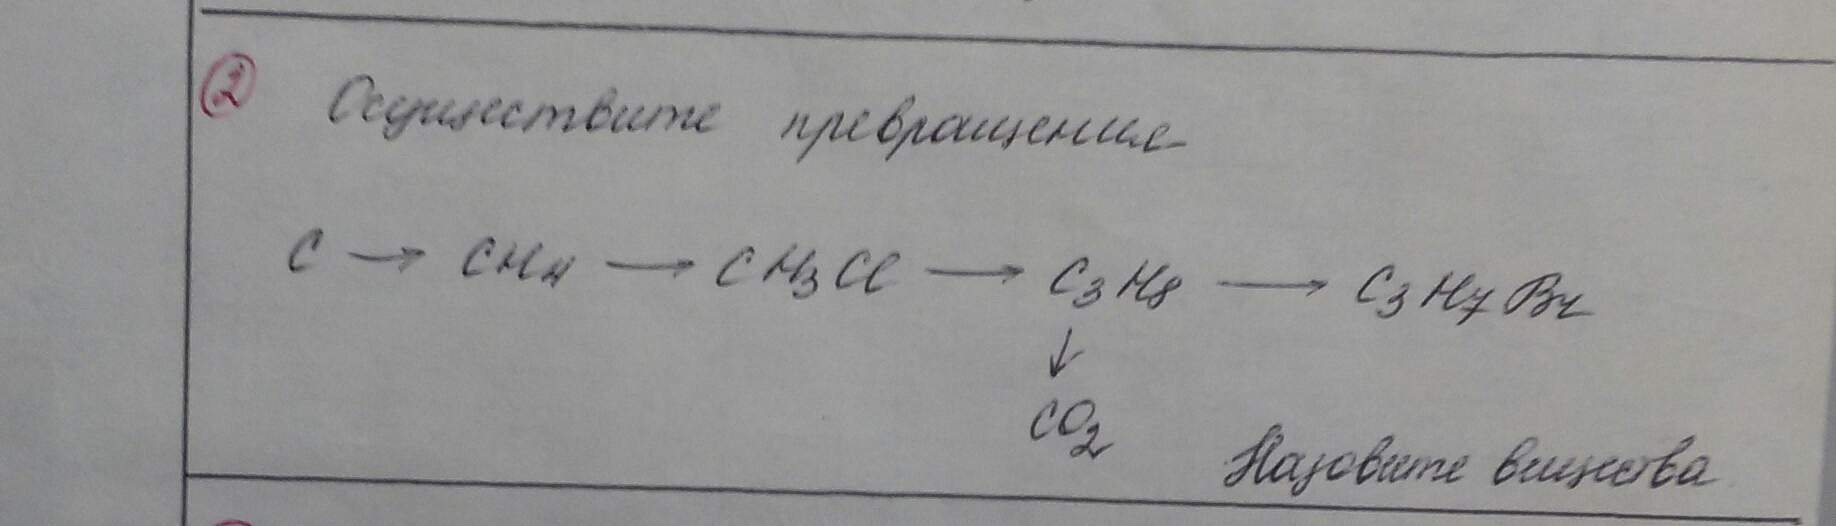 2 Осуществите превращение
C → CH4 → CH3Cl → C3H8 → C3H7Br
↓
CO2
Назовите вещества